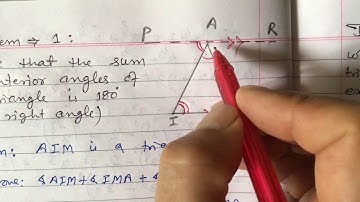 em ⇒ 1: P A R
e that the sum
nterior angles of
riangle is 180°
right angle)
I
: AIM is a trie
rove: ∠AIM + ∠IMA + ∠